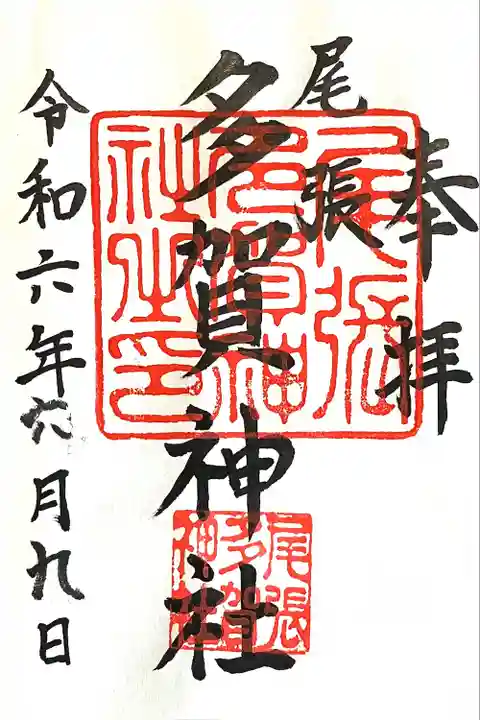 奉拝
尾張
多賀神社
令和六年六月九日
尾張多賀神社之印
尾張多賀神社